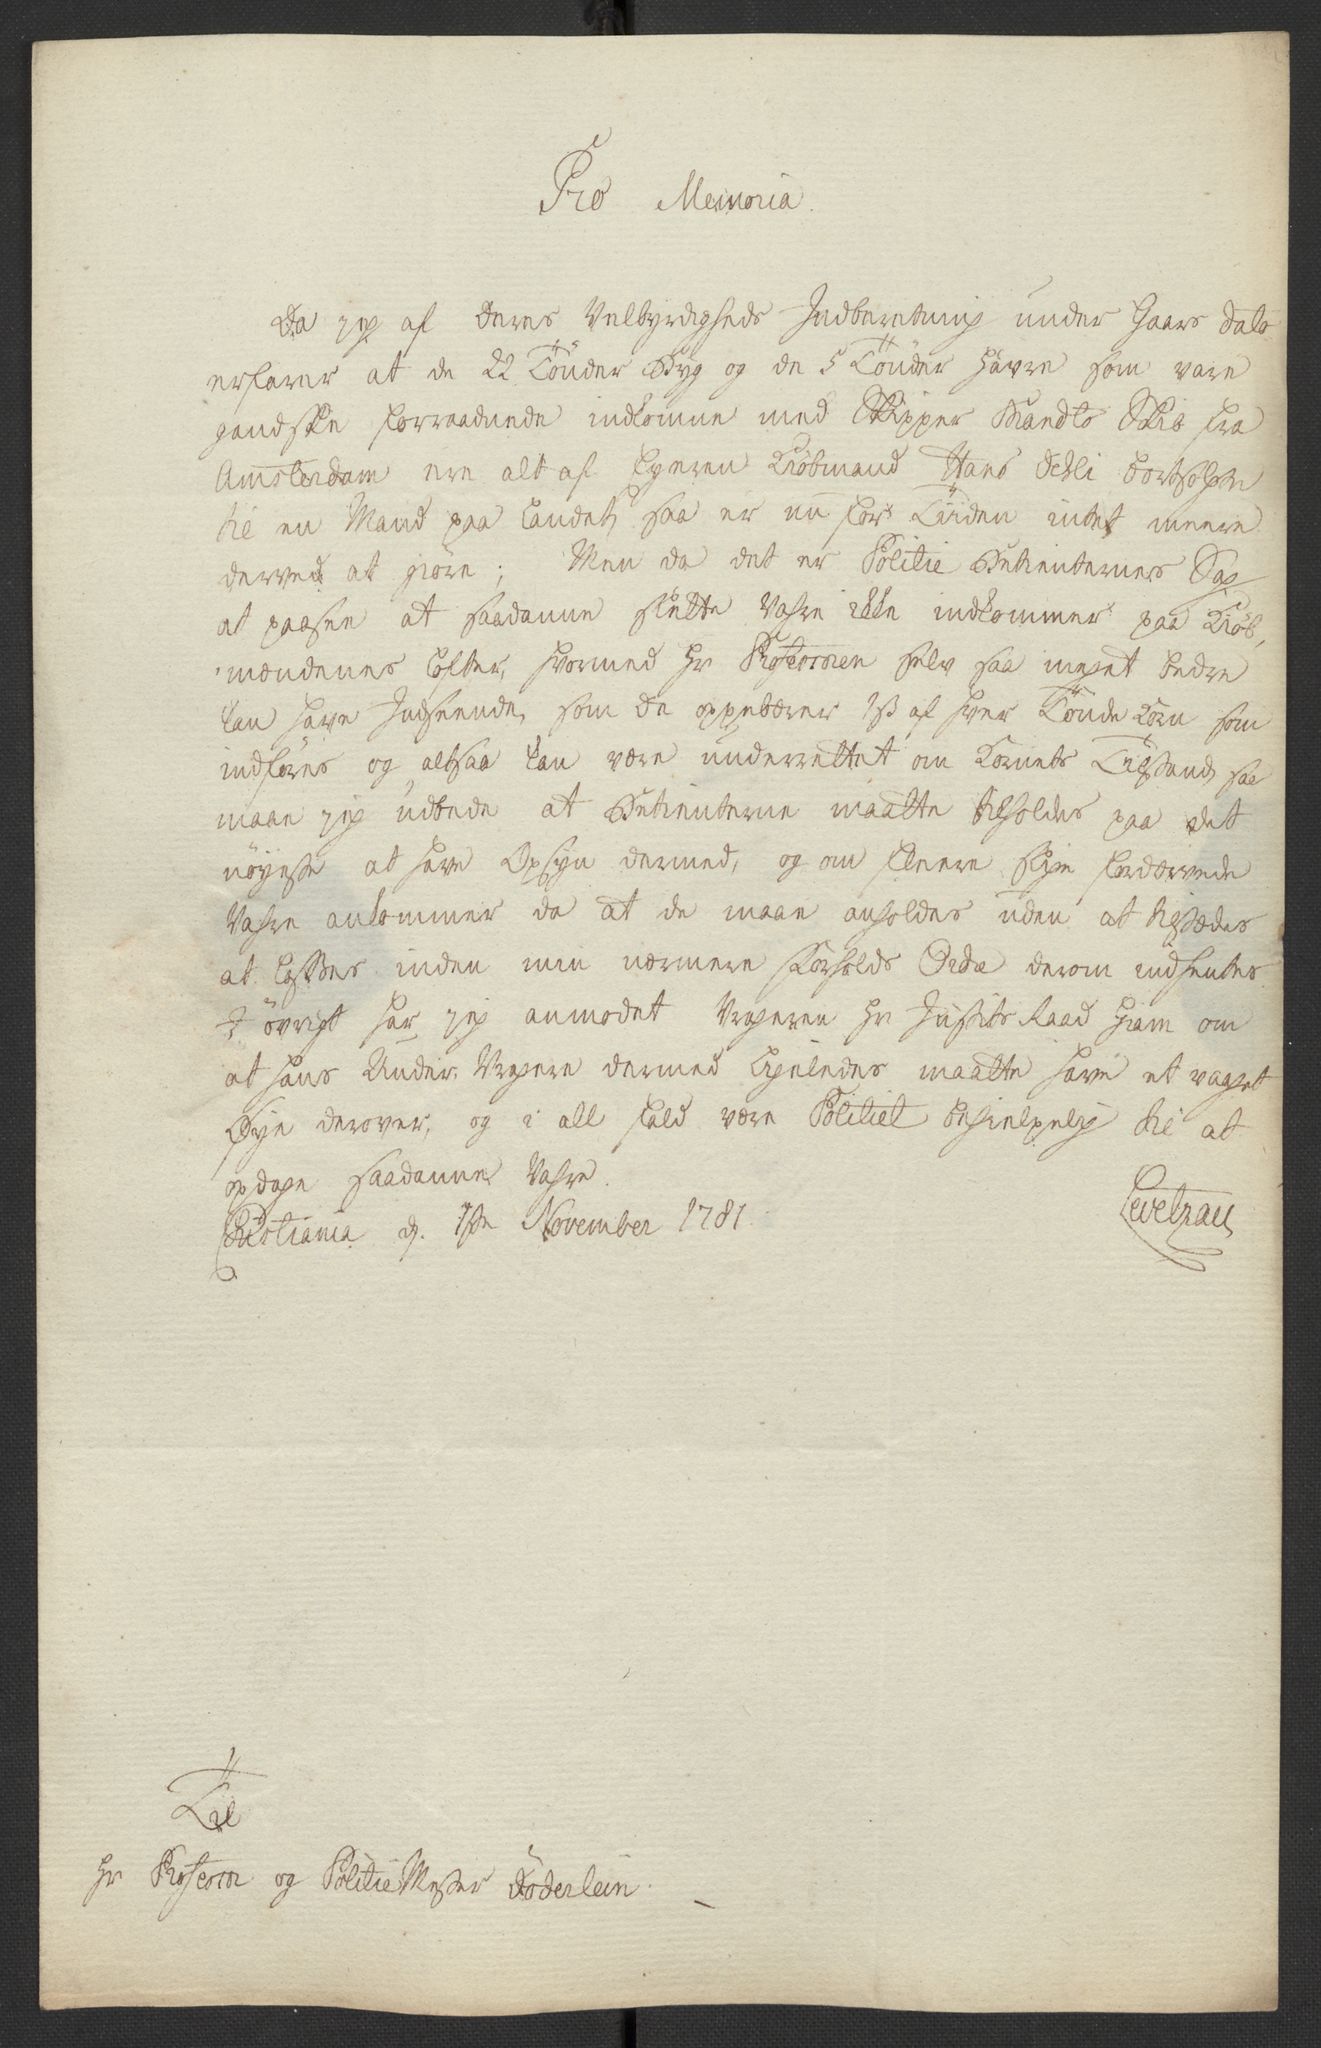 Pro Memoria.
Da jeg af Deres Velbyrdigheds Indberetning under Gaars Dato
erfarer at de 22 Tönder Byg og de 5 Tönder Havre som vare
gandske forraadnede indkomne med Skipper Skib fra
Amsterdam ere alt af Eyeren Kiöbmand Hans bortsolgte
til en Mand paa Landet, saa er nu for Tiiden intet meere
derved at giöre; Men da det er Politie Betienternes Sag
at paasee at saadanne slette Vahre ikke indkommer paa Kiöb-
mændenes Lofter, hvormed Hr Professoren selv saa meget bedre
kan have Indseende, som De oppebærer 1 ß af hver Tönde Korn som
indföres og altsaa kan være underrettet om Kornets Tilstand, saa
maae jeg udbede at Betienterne maatte tilholdes paa det
nöyeste at have Opsyn dermed, og om fleere slige fordærvede
Vahre ankommer da at de maae anholdes uden at tilstædes
at losses inden min nærmere Forholds Ordre derom indhentes.
I övrigt har jeg anmodet Vrageren Hr Justits Raad om
at hans Under Vragere dermed ligeledes maatte have et vaaget
Öye derover, og i all Fald være Politiet behielpelig til at
opdage saadanne Vahre.
Christiania d. 1ste November 1781.
Levetzau
Til
Hr Professor og PolitieMester Döderlein.